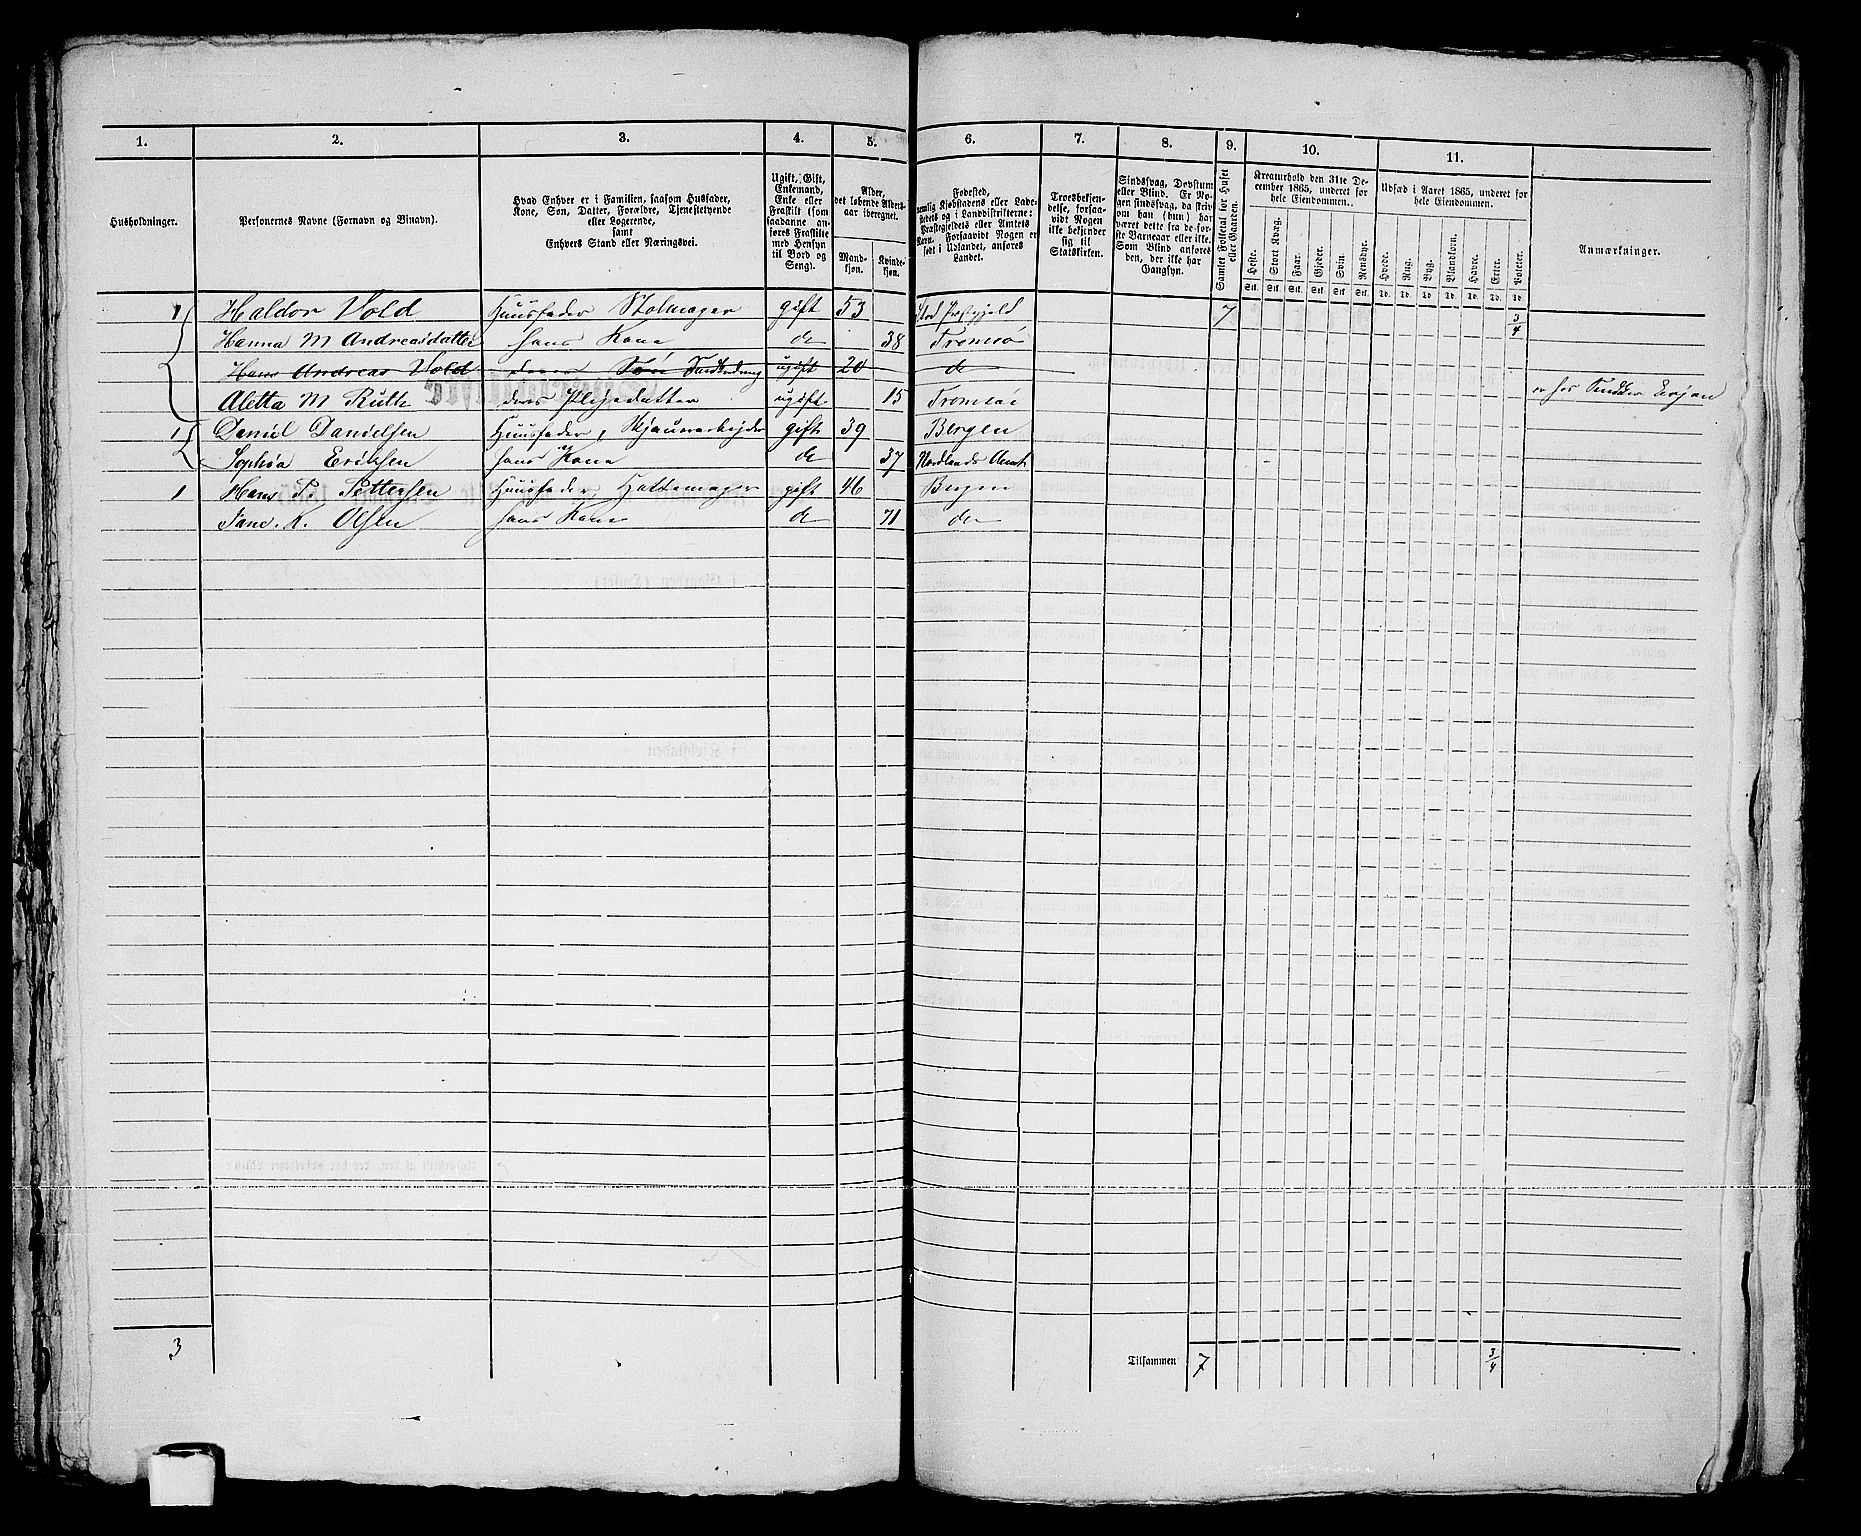 1. 2. 3. 4. 5. 6. 7. 8. 9. 10. 11.
Husholdninger.
Personernes Navne (Fornavn og Binavn).
Hvad Enhver er i Familien, saasom Husfader,
Kone, Søn, Datter, Forældre, Tjenestetyende
eller Logerende,
samt
Enhvers Stand eller Næringsvei.
Ugift, Gift,
Enkemand,
Enke eller
Fraskilt (som
saadanne an-
føres Fraskilte
med Hensyn
til Bord og
Seng).
Alder,
det løbende Alders-
aar iberegnet.
Mand-
kjøn.
Kvinde-
kjøn.
Fødested,
nemlig Kjøbstadens eller Lade-
stedets og i Landdistrikterne:
Præstegjeldets eller Amtets
Navn. Forsaavidt Nogen er
født i Udlandet, anføres
Landet.
Troesbekjen-
delse, forsaa-
vidt Nogen
ikke bekjender
sig til
Statskirken.
Sindssvag, Døvstum
eller Blind. Er No-
gen sindssvag, da skriv
om han (hun) har
været dette fra de før-
ste Barneaar eller ikke.
Som Blind anføres
den, der ikke har
Gangsyn.
Samlet Folketal for Huset
eller Gaarden.
Kreaturhold den 31te De-
cember 1865, underet for
hele Eiendommen.
Heste. Stort Kvæg. Faar. Gjeder. Svin. Rensdyr.
Stk. Stk. Stk. Stk. Stk. Stk.
Udsæd i Aaret 1865, underet for
hele Eiendommen.
Hvede. Rug. Byg. Blandkorn. Havre. Erter. Poteter.
Td. Td. Td. Td. Td. Td. Td.
Anmærkninger.
1 Haldor Vold Huusfader Stolmager gift 53 Præstgjeld 7 3/4
Hanna M Andreasdatter hans Kone do 38 Tromsø
Hans Andreas Vold deres Søn ugift 20 do
Aletta M Ruth deres Plejedatter ugift 15 Tromsøe
1 Daniel Danielsen Huusfader, Skjauerarbejder gift 39 Bergen
Sophia Eriksen hans Kone do 37 Nordlands Amt
1 Hans P. Pettersen Huusfader, Hattemager gift 46 Bergen
Jane K. Olsen hans Kone do 71 do
3 Tilsammen 7 3/4